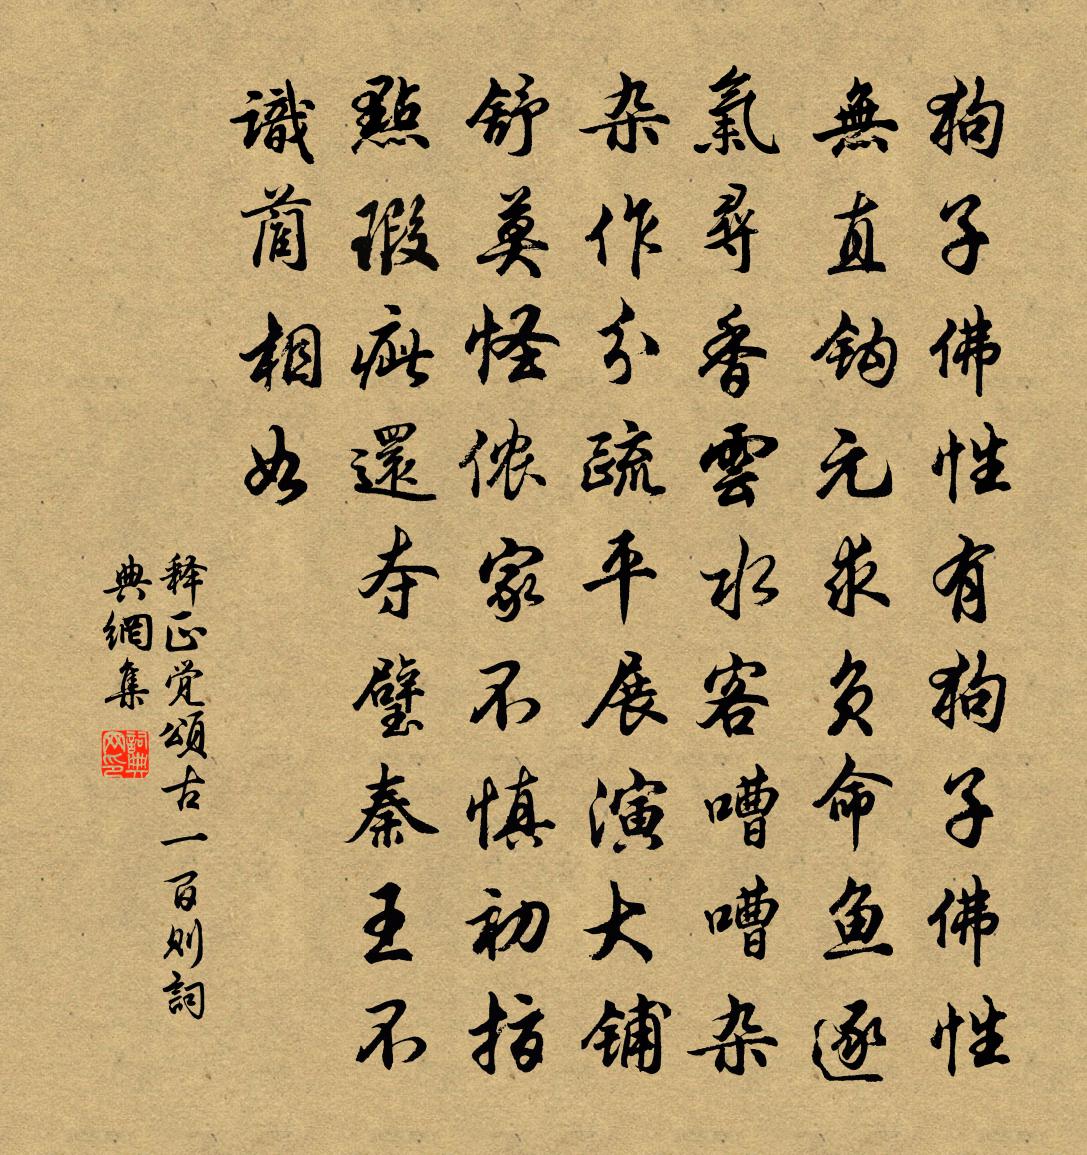 狗子佛性有狗子佛性
無直鈎元求負命魚逐
氣尋香雲水客嘈嘈杂
杂作分疏平展演大铺
舒莫怪侬家不慎初指
點瑕疵還夺璧秦王不
識蔺相如
释正觉頌古一百则詞
典網集
詞典网印